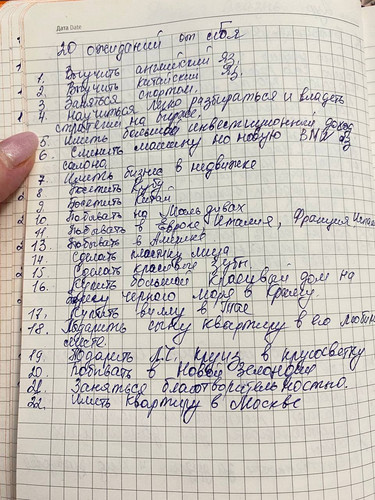 Дата Date
20 ожиданий от себя
1. Выучить английский яз.
2. Выучить китайский яз.
3. Заняться спортом.
4. Научиться легко разбираться и владеть
стратегией на бирже.
5. Иметь большой инвестиционный доход
6. Сменить машину на новую BMW из
салона
7. Иметь бизнес в недвижке
8 Посетить Кубу
9 Посетить Китай
10 Побывать на Мальдивах
11 Побывать в Европе, Италия, Франция
13. Побывать в Америке
14. Сделать пластику лица
15 Сделать красивые зубы
16. Купить большой красивый дом на
берегу Черного моря в Крыму.
17. Купить виллу в Тае
18. Подарить сыну квартиру в его любим
месте.
19. Подарить круиз в кругосветку
20. Побывать в Новой Зеландии
21. Заняться благотворительностью.
22. Иметь квартиру в Москве